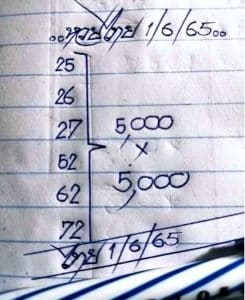 ..หวยไทย/1/6/65..
25
26
27 5,000
×
52
62 5,000
72
ไทย/1/6/65